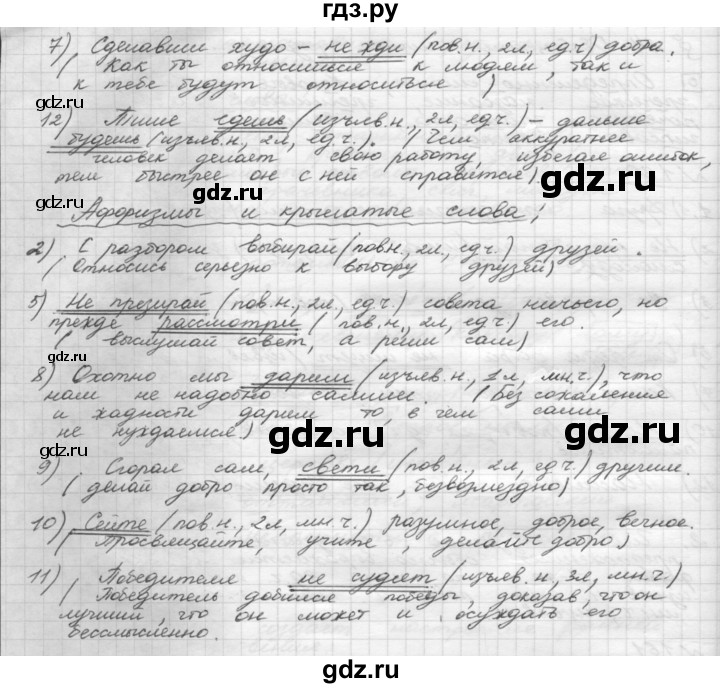 гдз.ру
7) Сделавши худо – не жди (пов.н., 2л, ед.ч) добра.
( Как ты относишься к людям, так и
к тебе будут относиться )
12) Тише едешь (изъяв.н., 2л, ед.ч.) – дальше
будешь (изъяв.н., 2л, ед.ч.). (Чем аккуратнее
человек делает свою работу, избегая ошибок,
тем быстрее он с ней справится)
gdz.ru
Афоризмы и крылатые слова:
2) С разбором выбирай (пов.н., 2л, ед.ч.) друзей.
(Относись серьезно к выбору друзей)
5) Не презирай (пов.н., 2л, ед.ч) совета ничьего, но
прежде рассмотри ( пов.н., 2л, ед.ч) его.
( выслушай совет, а реши сам)
gdz.ru
8) Охотно мы дарим (изъяв.н., 1л, мн.ч.), что
нам не надобно самим. (Без сожаления
и жадности дарим то, в чем сами
не нуждаемся)
gdz.ru
gdz.ru
9) Сгорая сам, свети (пов.н., 2л, ед.ч) другим.
( делай добро просто так, безвозмездно)
10) Сейте (пов.н., 2л, мн.ч.) разумное, доброе, вечное.
(Просвещайте, учите, делайте добро)
11) Победителя не судят (изъяв.н, 3л, мн.ч.)
( Победитель добился победы, доказав, что он
лучший, что он может и осуждать его
бессмысленно.
gdz.ru
gdz.ru